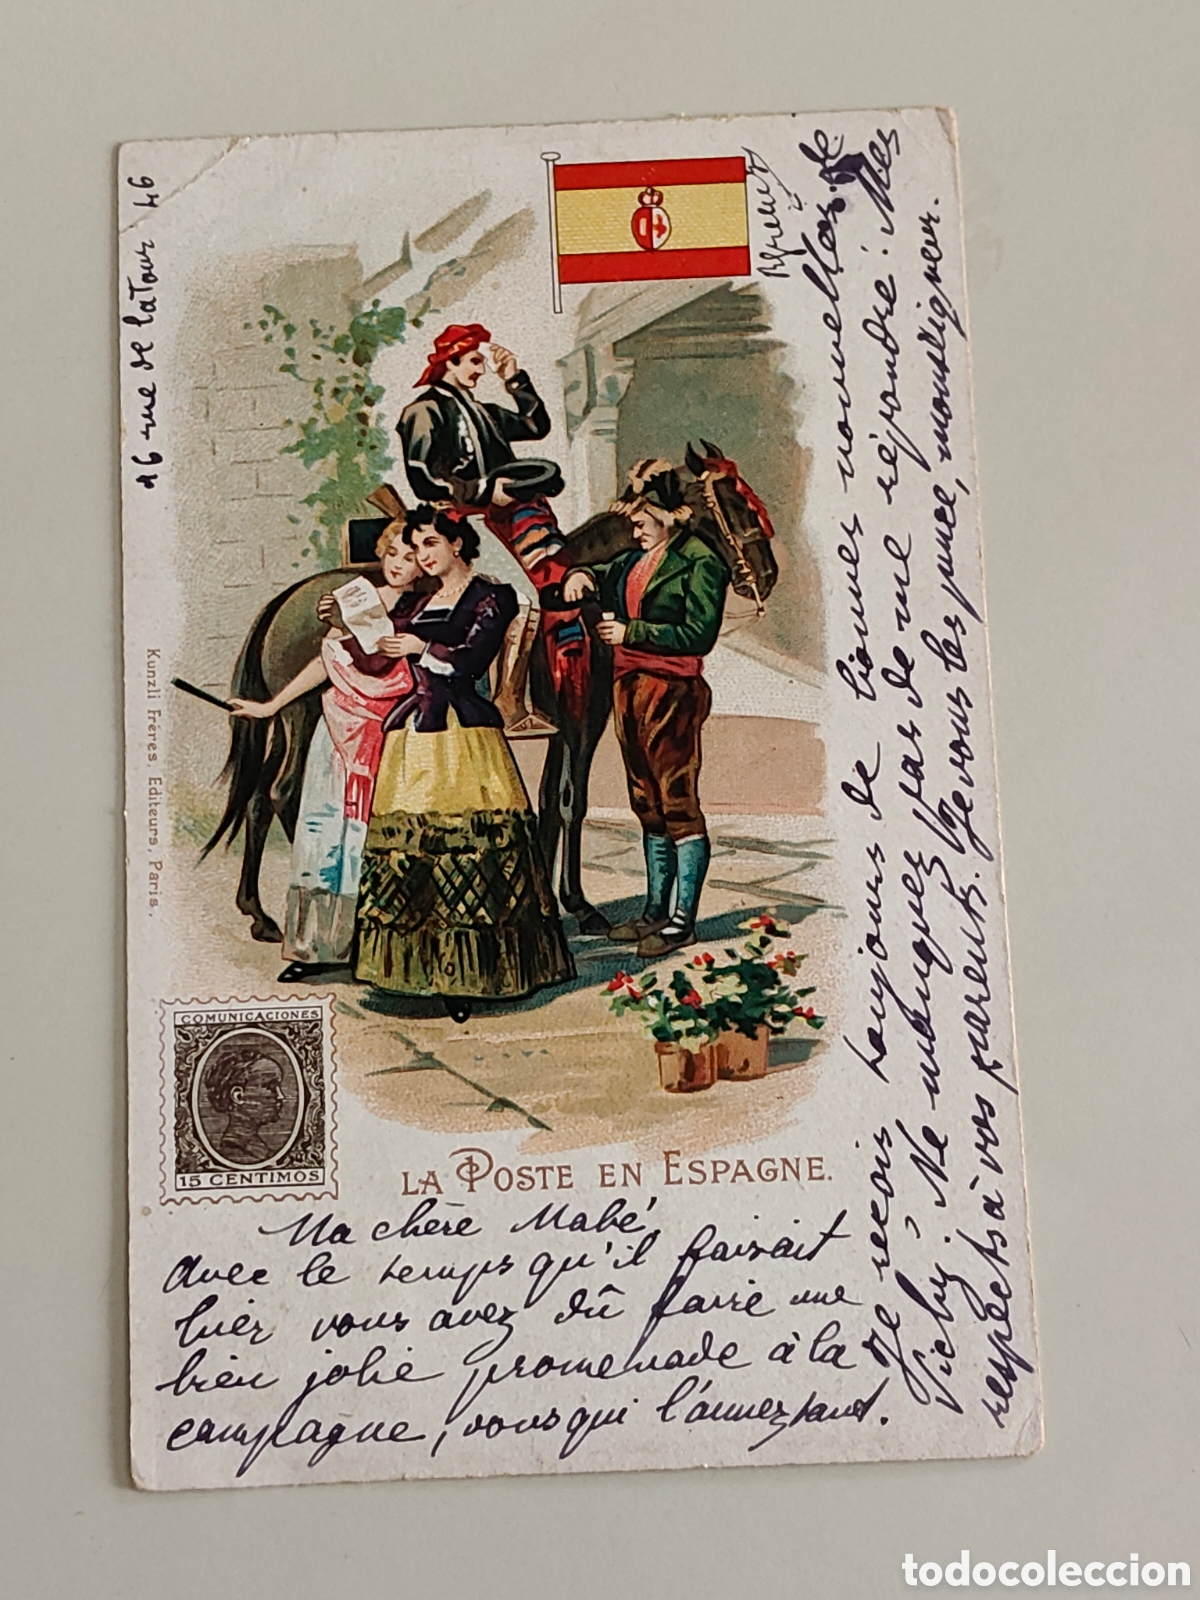 16 rue de la Tour 16
Kunzli Frères, Editeurs, Paris.
COMUNICACIONES
15 CENTIMOS
LA POSTE EN ESPAGNE.
Ma chère Mabé,
Avec le temps qu'il faisait
hier vous avez dû faire une
bien jolie promenade à la
campagne, vous qui l'aimez tant.
Je reçois toujours de bonnes nouvelles de
Vichy. Ne manquez pas de me répondre. Mes
respects à vos parents. Je vous les pince, monseigneur.
todocoleccion